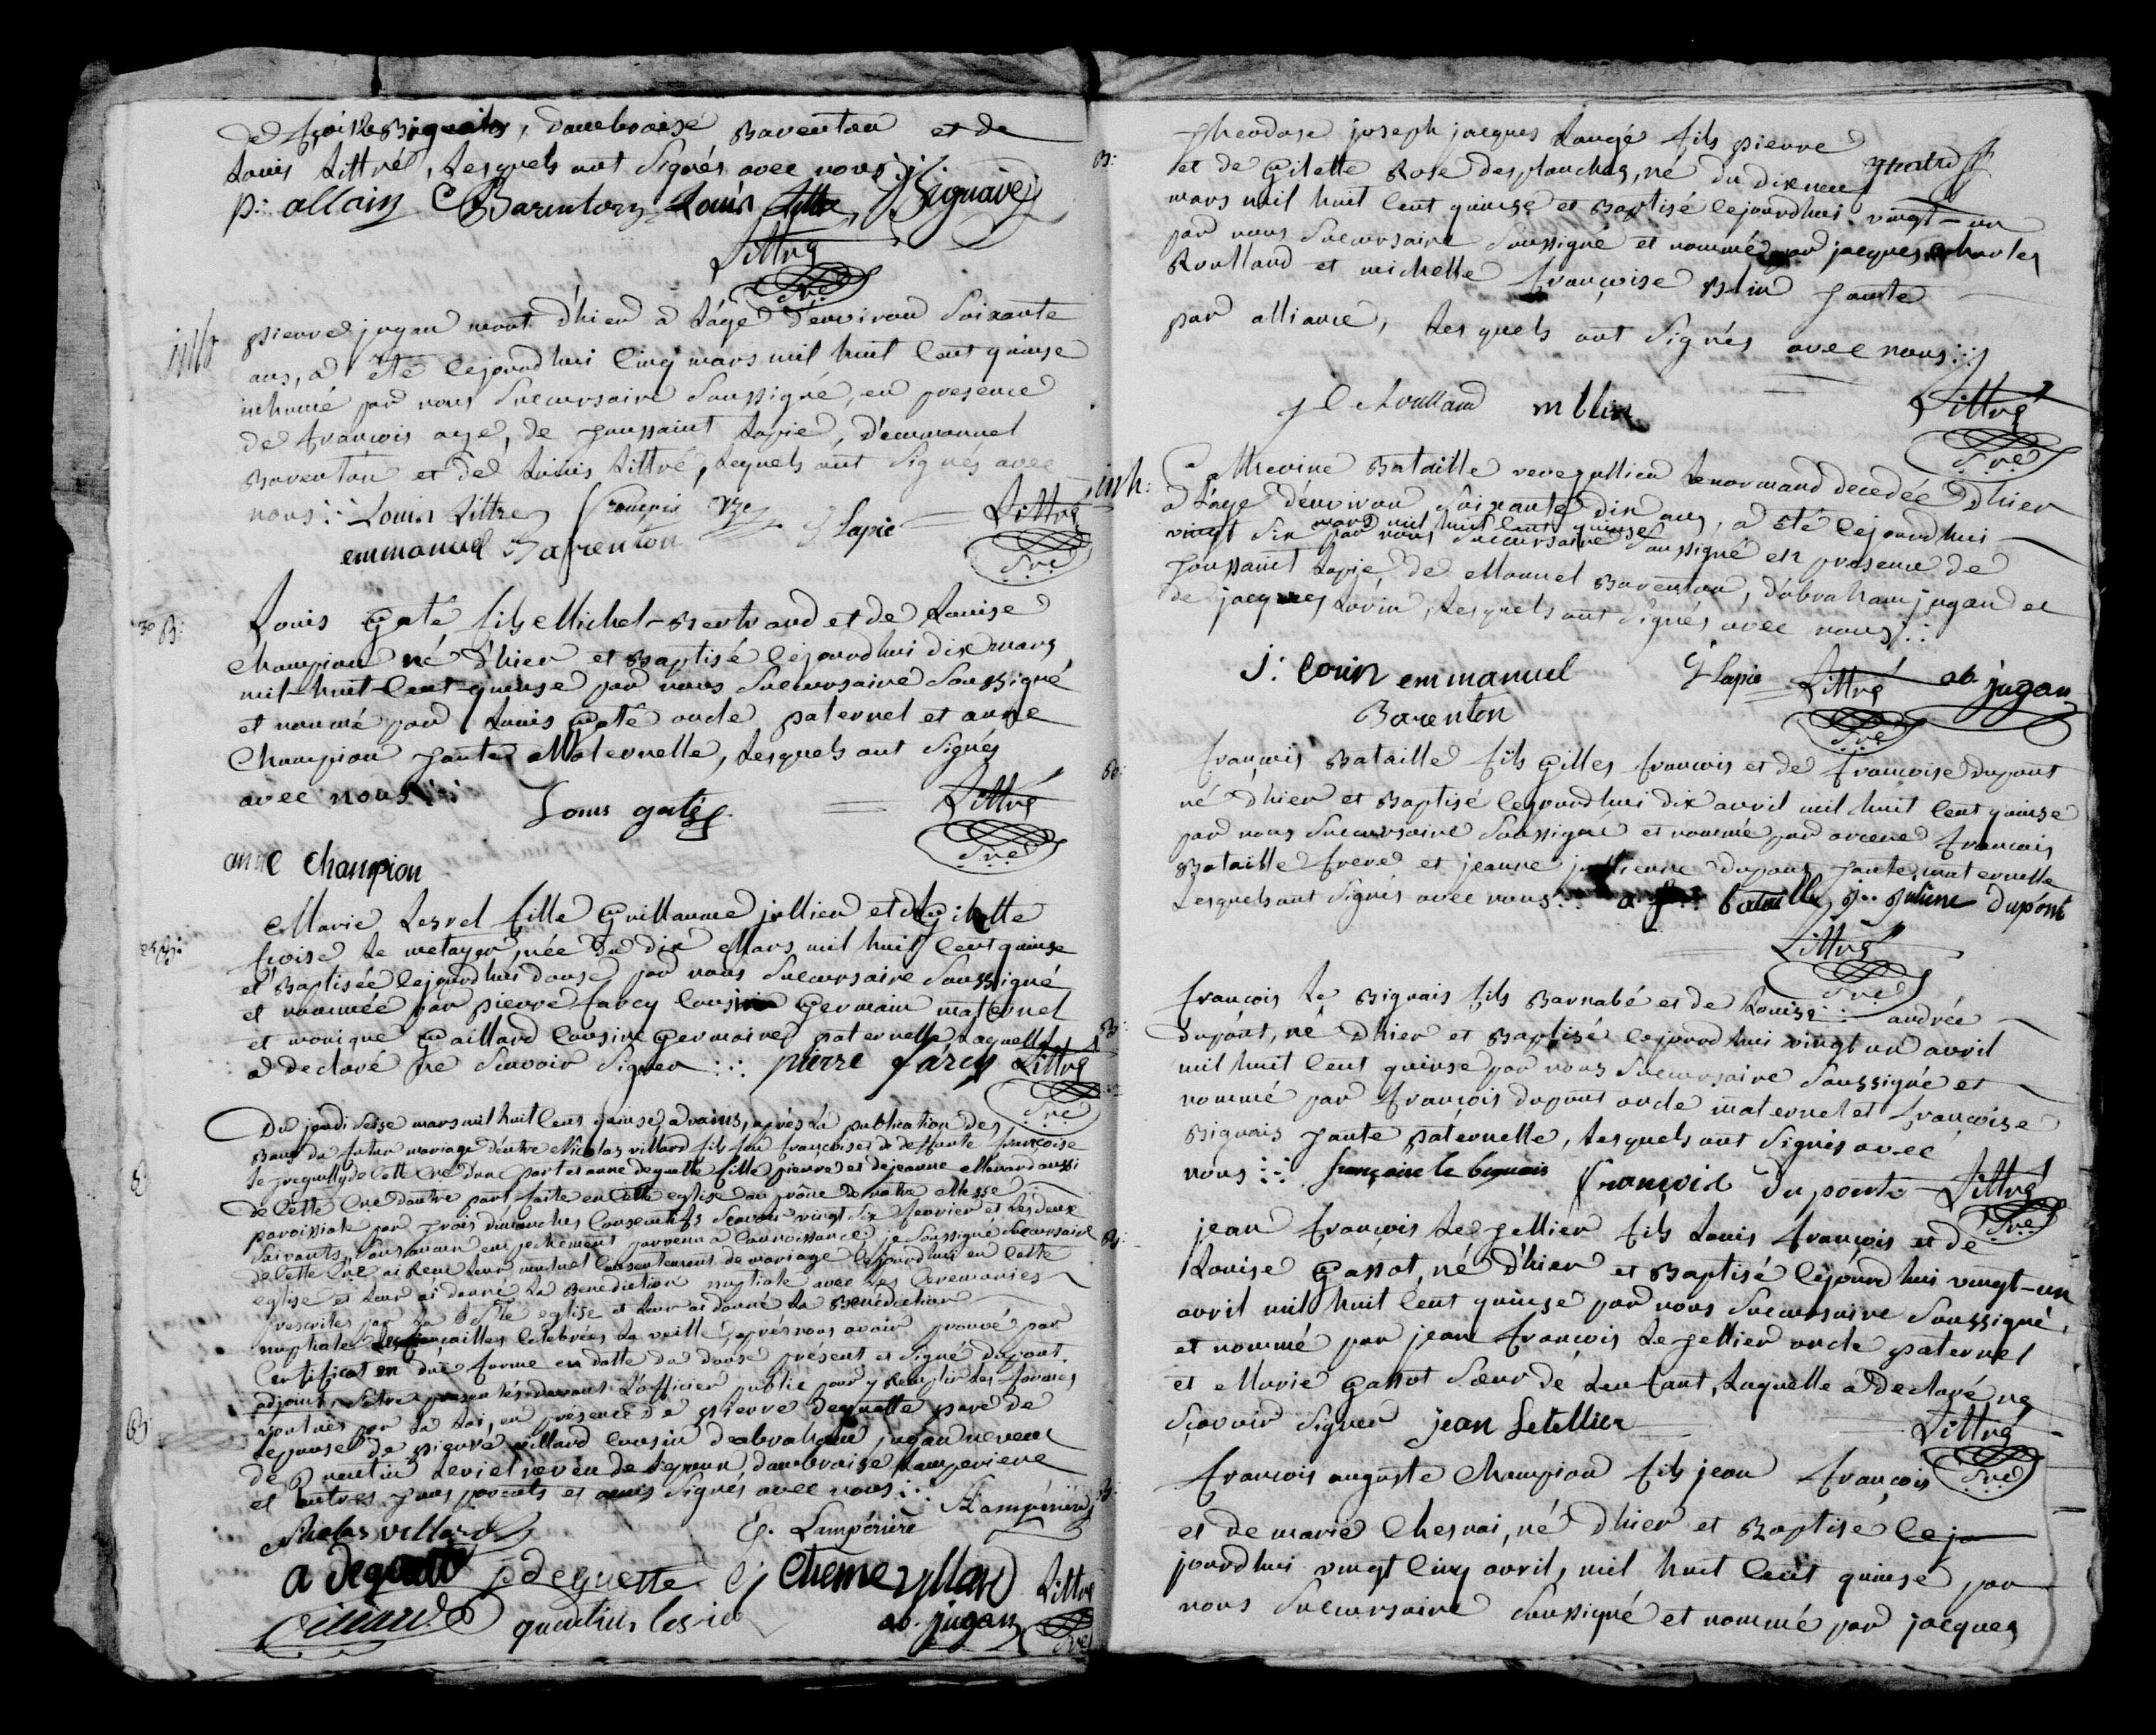 de fçois Le Biguais, d'ambroise Barenton et de
Louis Littré, Lesquels ont Signés avec nous
p: allain Barenton Louis Littré Biguais
Littré
Sre
inh
pierre jugan mort d'hier a L'age d'environ Soixante
ans, a été cejourdhui cinq mars mil huit cent quinse
inhumé par nous Succursaire Soussigné, en presence
de françois oze, de Toussaint Lapie, d'emmanuel
Barenton et de Louis Littré, Lequels ont Signés avec
nous Louis Littre françois oze T Lapie Littré
emmanuel Barenton Sre
30 B:
Louis Gaté fils Michel-Bertrand et de Louise
Champion né d'hier et Baptisé cejourdhui dix mars
mil-huit-Cent-quinse par nous Succursaire Soussigné
et nommé par Louis Gaté oncle paternel et anne
Champion Tante Maternelle, Lesquels ont Signés
avec nous Louis gaté Littré
Sre
anne Champion
Marie Lesrel fille Guillaume jullien et de Gilette
fçoise Le metayer, née du dix Mars mil huit Cent quinse
et Baptisée cejourdhui douse par nous Succursaire Soussigné
et nommée par pierre farcy Cousin Germain maternel
et monique Gaillard Cousine Germaine paternelle Laquelle
a declaré ne Scavoir Signer pierre farcy Littré
Sre
Du jeudi Seise mars mil huit cent quinse a vains, après La publication des
Bans du futur mariage d'entre Nicolas villard fils feu françois et de deffunte françoise
de cette Cne d'une part et anne deguette fille pierre et de jeanne Menard aussi
de Cette Cne d'autre part faite en Cette eglise au prône de notre Messe
paroissiale par Trois dimanches Consecutifs Scavoir vingt Six fevrier et Les deux
Suivants, Sans aucun empechement parvenu a Connoissance, je Soussigné Succursaire
de Cette Cne ai Recu Leur mutuel Consentement de mariage cejourdhui en Cette
eglise et Leur ai donné La Benediction nuptiale avec Les Ceremonies
prescrites par La Ste eglise et Leur ai donné La Bénédiction
nuptiale Les fiancailles Celebrées La veille, après nous avoir prouvé par
Certificat en due forme en datte du douse présent et Signé dupont
adjoint, S'etre presentés devant L'officier public pour y Remplir Les formes
voulues par La Loi, en présence de pierre deguette pere de
L'epouse de pierre villard cousin d'abraham jugan neveu
de quentin Leriel neveu de L'epoux, d'ambroise Lamperiere
et autres Tous parents et amis Signés avec nous Lampériere
Nicolas villard E. Lampérière
a deguette p deguette Etienne villard Littré
villard quentin lesrel ab. jugan Sre
B:
Theodose joseph jacques Laugé fils pierre
et de Gilette Rose desplanches, né du dixneuf
mars mil huit Cent quinse et Baptisé cejourdhui vingt-un
par nous Succursaire Soussigné et nommé par jacques Charles
Roulland et michelle françoise Blin Tante
par alliance, Lesquels ont Signés avec nous
j C Roulland m blin Littré
Sre
inh:
Catherine Bataille veve jullien Lenormand decedée d'hier
a L'age d'environ Soixante dix ans, a été cejourdhui
vingt Six mars mil huit Cent quinse
par nous Succursaire Soussigné en presence de
Toussaint Lapie, de Manuel Barenton, d'abraham jugan et
de jacques Lorin, Lesquels ont Signés avec nous
j: Lorin emmanuel T Lapie Littré ab. jugan
Barenton Sre
françois Bataille fils Gilles françois et de françoise Dupont
né d'hier et Baptisé cejourdhui dix avril mil huit Cent quinse
par nous Succursaire Soussigné et nommé par arcene françois
Bataille frere et jeanne jullienne Dupont Tante maternelle
Lesquels ont Signés avec nous a f bataille j. juliene dupont
Littré
Sre
françois Le Biguais fils Barnabé et de Louise andrée
Dupont, né d'hier et Baptisé cejourdhui vingt un avril
mil huit Cent quinse par nous Succursaire Soussigné et
nommé par françois dupont oncle maternel et françoise
Biguais Tante paternelle, Lesquels ont Signés avec
nous françoise le biguais françois Dupont Littré
Sre
jean françois Le Tellier fils Louis françois et de
Louise Gassot, né d'hier et Baptisé cejourdhui vingt-un
avril mil huit Cent quinse par nous Succursaire Soussigné,
et nommé par jean françois Le Tellier oncle paternel
et Marie Gassot Sœur de L'enfant, Laquelle a Declaré ne
Sçavoir Signer jean Letellier Littré
Sre
françois auguste Champion fils jean françois
et de marie Chesnai, né d'hier et Baptisé Cejo
jourdhui vingt Cinq avril, mil huit Cent quinse par
nous Succursaire Soussigné et nommé par jacques